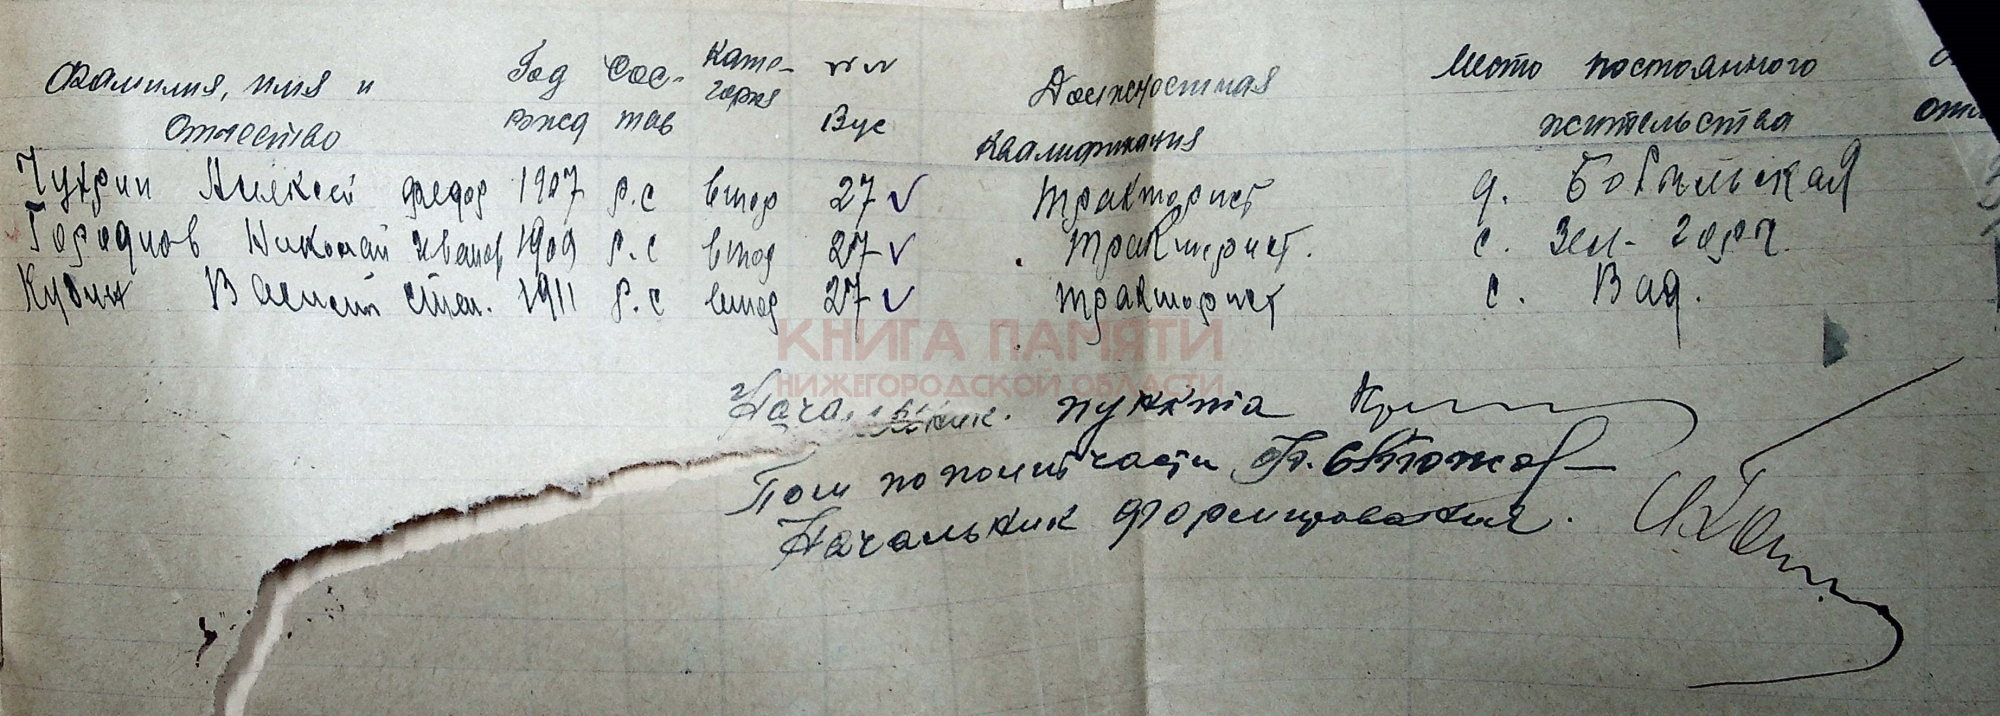 Фамилия, имя и Год Сос- Кате- №№ Должностная Место постоянного
отчество рожд тав гория Вус квалификация жительства
Чухрин Алексей Федор 1907 р.с втор 27 Тракторист д. Бобыльская
Городнов Николай Иванов 1909 р.с втор 27 тракторист. с. Зел-
Василий степ. 1911 р.с втор 27 тракторист с. Вад.
КНИГА ПАМЯТИ
НИЖЕГОРОДСКОЙ ОБЛАСТИ
Начальник пункта
Пом по полит части
Начальник формирования.